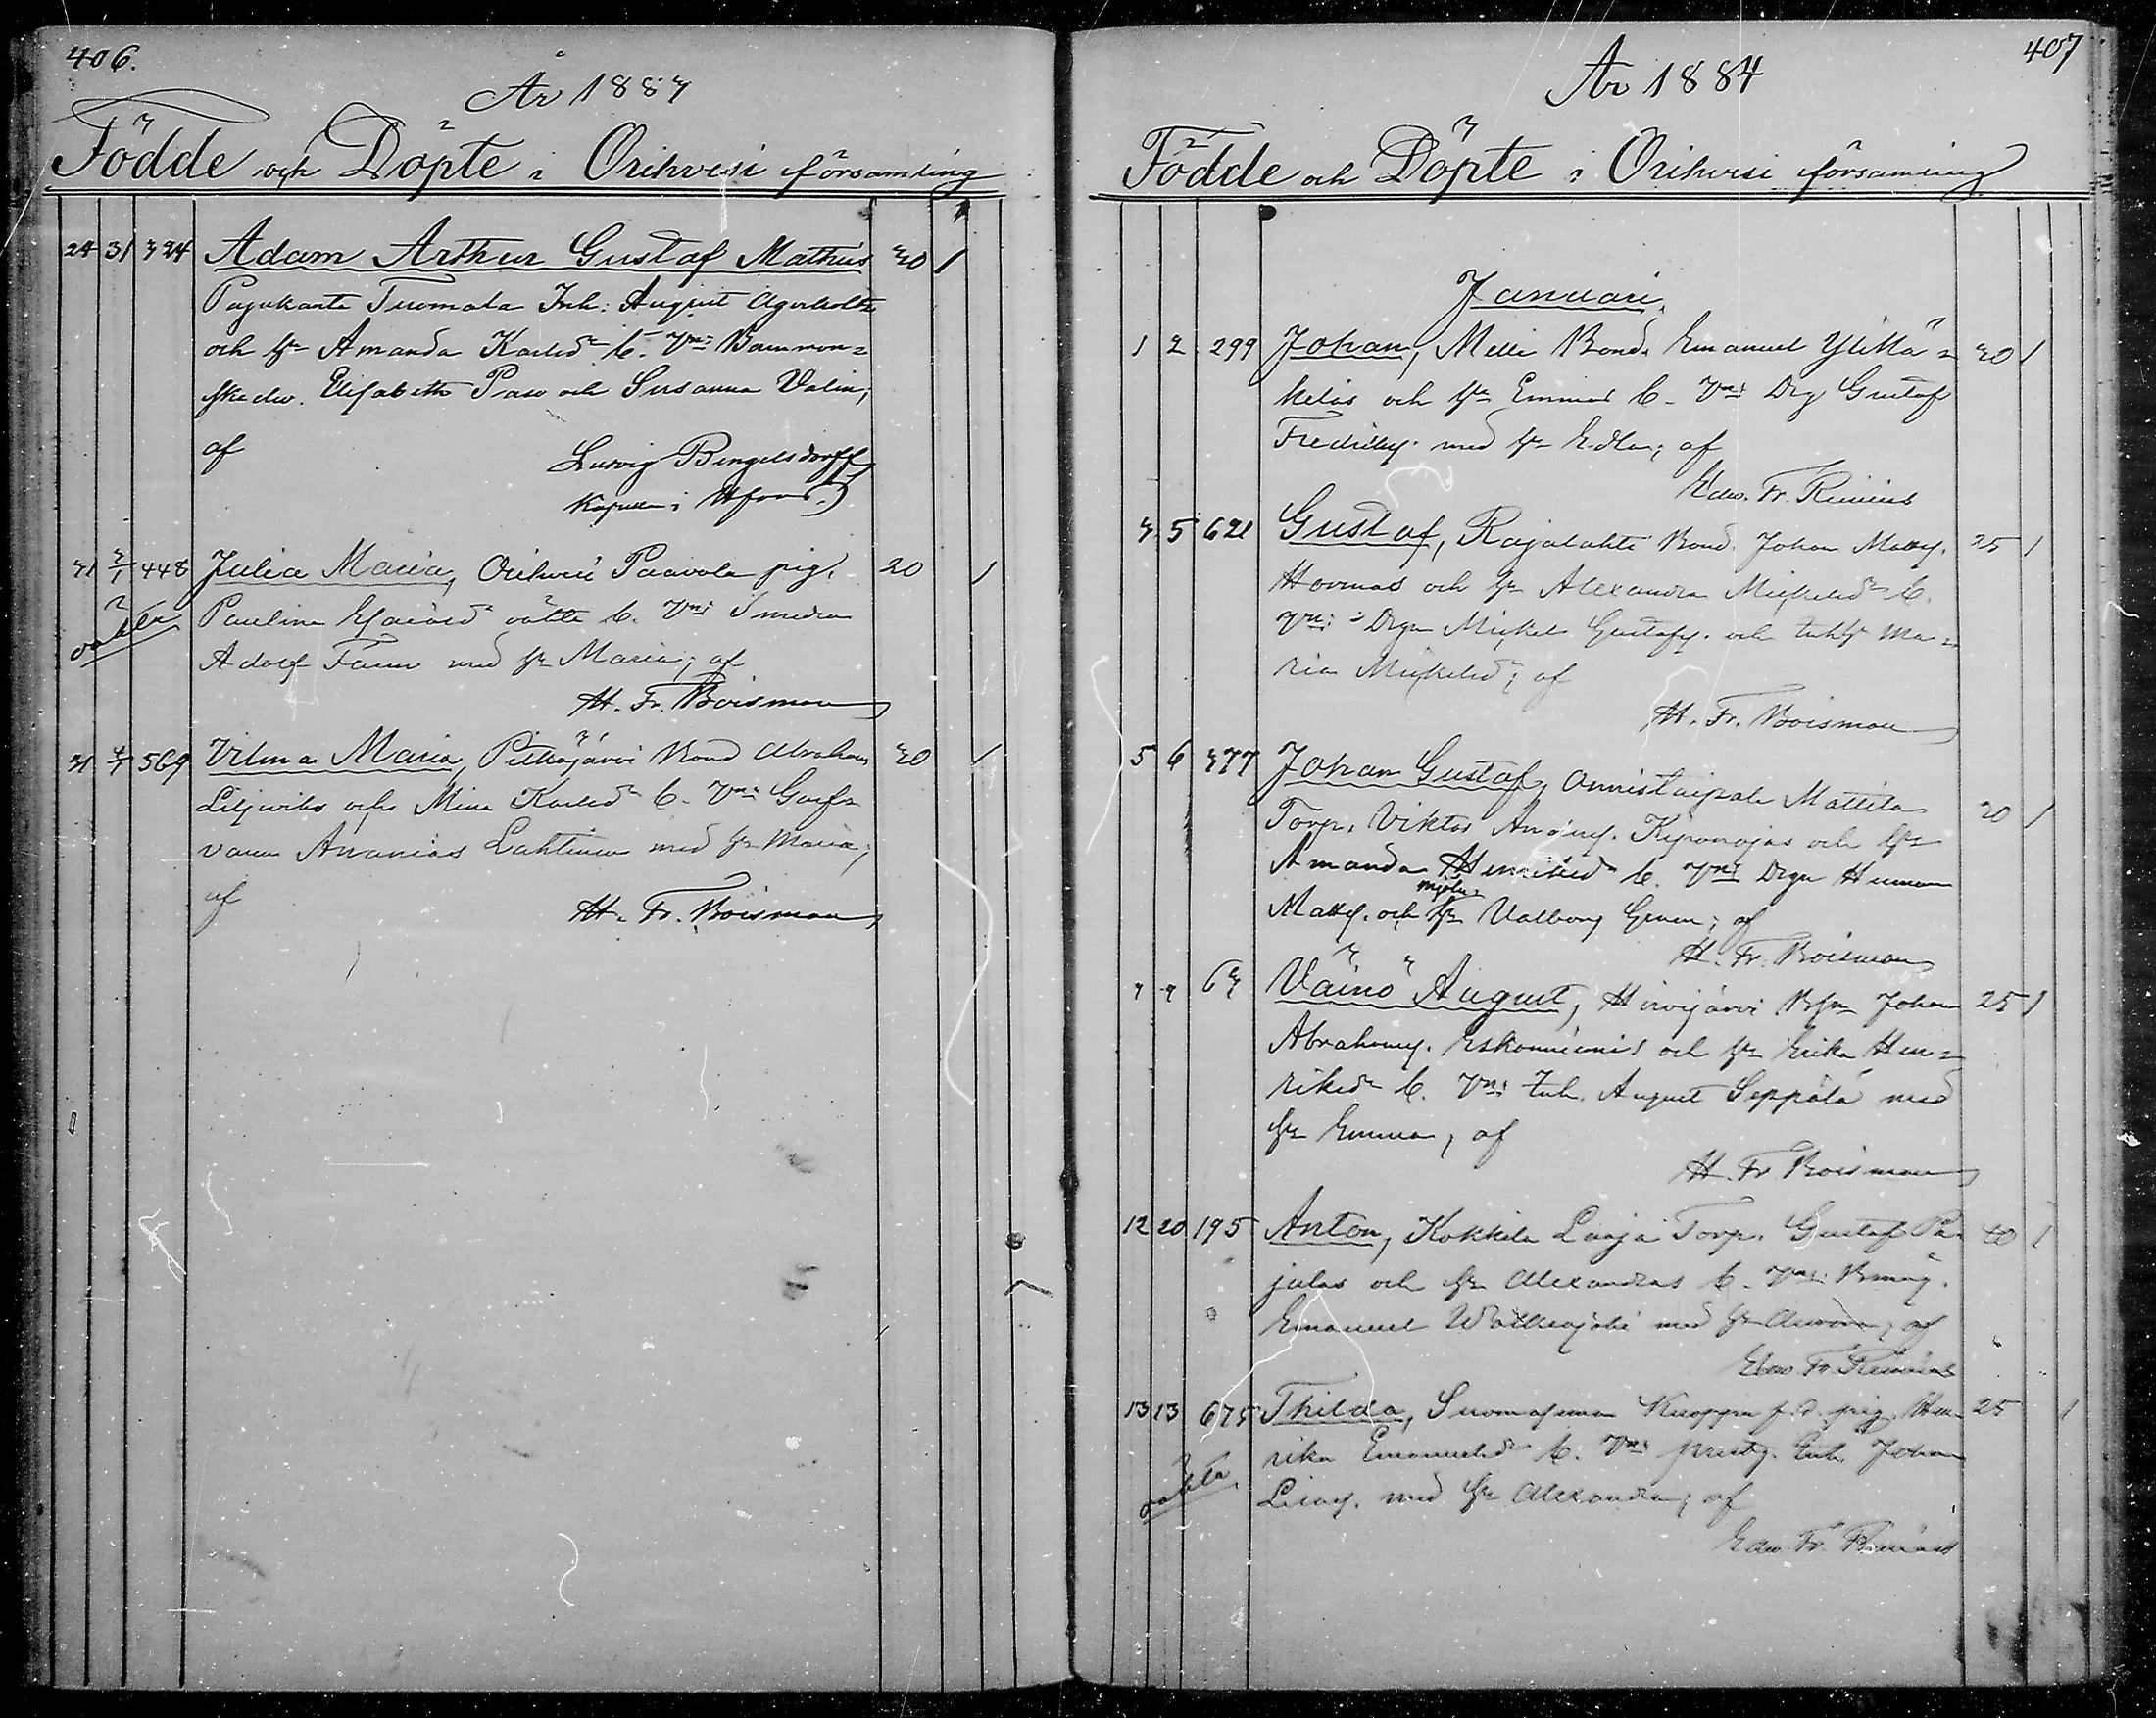 406.
År 1883
Födde och Döpte i Orihvesi församling
24 31 324 Adam Arthur Gustaf Mathias 30 1
Pajukanta Tuomala Inh: August Agerholtz
och hu Amanda Karlsdr b. Vn: Barnmor-
skedw. Elisabeth Paso och Susanna Valin;
af Ludvig Bengelsdorff
Kapellan i Hfors
31 3/1 448 Julia Maria, Orihvesi Paavola pig. 20 1
oäkta Pauline Esaiasdr oäkta b. Vn: Smeden
Adolf Fauer med hu Maria; af
H. Fr. Boisman
31 4/1 569 Vilma Maria, Pitkäjärvi Bond Abraham 30 1
Liljeviks och Mina Karlsdr b. Vn:
Ananias Lahtinen med hu Maria;
af H. Fr. Boisman
407
År 1884
Födde och Döpte i Orihvesi församling
Januari.
1 2 299 Johan, Melli Bond. Emanuel Ylikä- 30 1
keläs och hu Emmas b. Vn: Drg Gustaf
Fredriks. med hu Edla; af
Edw. Fr. Reinius
3 5 621 Gustaf, Rajalahti Bond. Johan Matts. 25 1
Hormas och hu Alexandra Mickelsdr b.
Vn: Drgn Mickel Gustafs. och Ma-
ria Mickelsdr; af
H. Fr. Boisman
5 6 377 Johan Gustaf, Onnistaipale Mattila 20 1
Torp. Viktor Kiponojas och hu
Amanda Henriksdr b. Vn: Drgn Herman
Matts. och Valborg; af
H. Fr. Boisman
7 9 63 Väinö August, Hirvijärvi Johan 25 1
Abrahams. Eskonniemis och hu Erika Hen-
riksdr b. Vn: Inh. August Seppälä med
hu Emma, af
H. Fr Boisman
12 20 195 Anton, Kokkila Laaja Torp. Gustaf Pa- 40 1
julas och hu Alexandras b. Vn:
Emanuel med hu Aurora, af
Edw Fr Reinius
13 13 675 Thilda, Suomasema Knuppa f. d. pig. Hen- 25 1
oäkta. rika Emanuelsdr b. Vn: Inh. Johan
med hu Alexandra; af
Edw Fr. Reinius